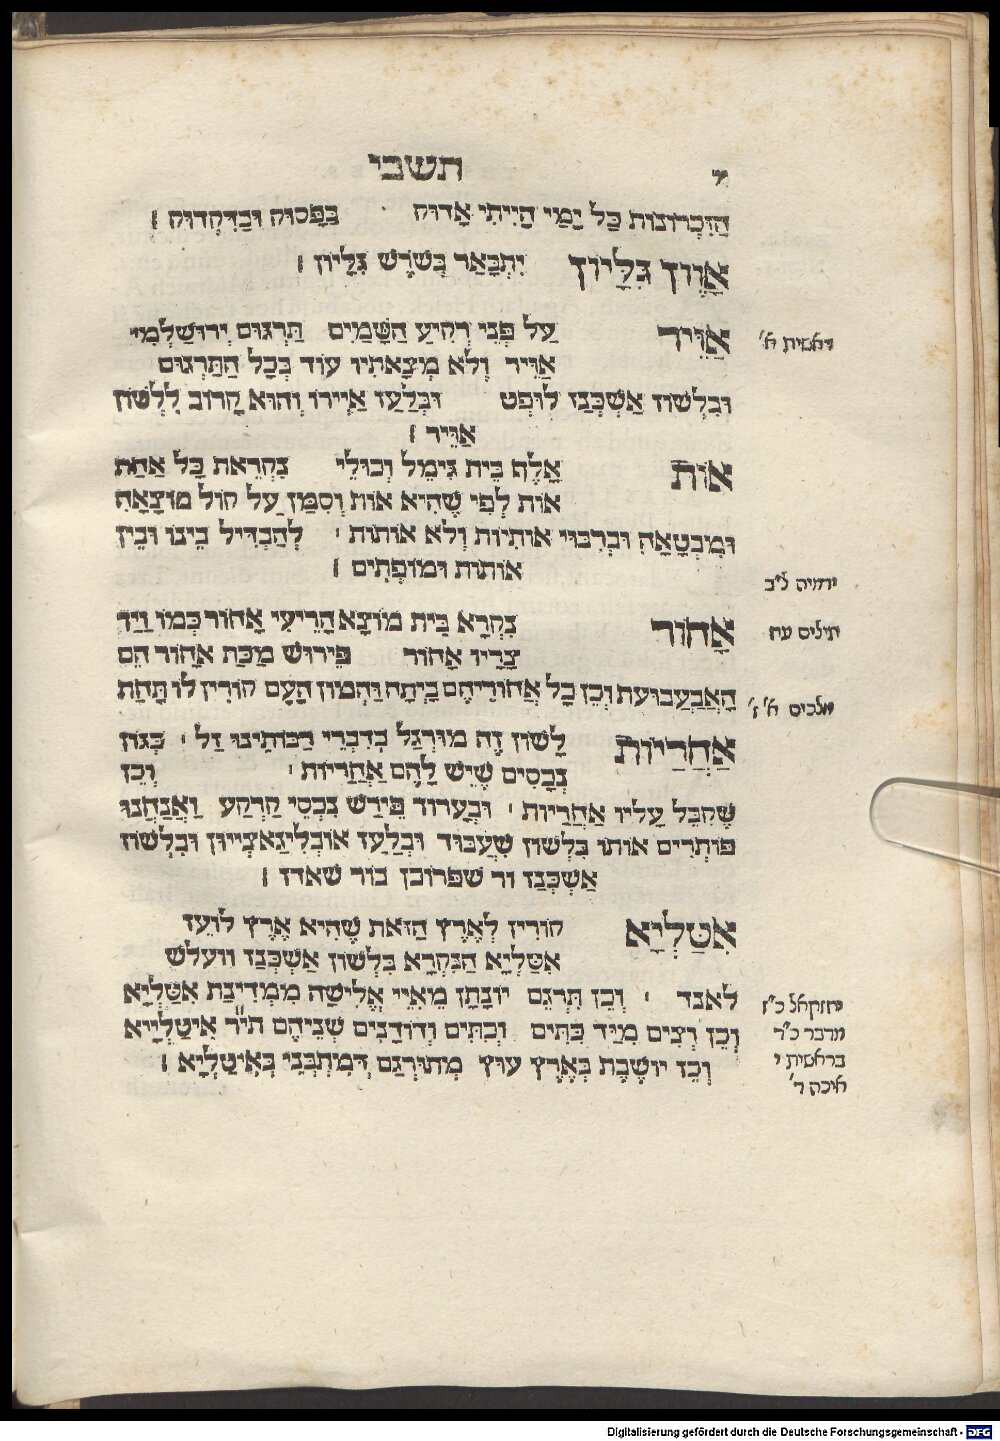 תשבי
ד
הַזִּכְרוֹנוֹת כָּל יָמַי הָיִיתִי אָדוּק בְּפָסוּק וּבְדִקְדּוּק ׀
אָוֶון גִּלָּיוֹן יִתְבָּאַר בְּשֹׁרֶשׁ גִּלָּיוֹן ׀
אֲוִיר עַל פְּנֵי רְקִיעַ הַשָּׁמַיִם תַּרְגּוּם יְרוּשַׁלְמִי
בראשית א'
אַוִּיר וְלֹא מְצָאתִיו עוֹד בְּכָל הַתַּרְגּוּם
וּבִלְשׁוֹן אַשְׁכְּנַז לוּפְט וּבְלַעַז אַיְירוּ וְהוּא קָרוֹב לִלְשׁוֹן
אַוִּיר ׀
אוֹת אָלֶף בֵּית גִּימֶל וְכוּלֵּי נִקְרֵאת כָּל אַחַת
אוֹת לְפִי שֶׁהִיא אוֹת וְסִמָּן עַל קוֹל מוֹצָאָהּ
וּמִבְטָאָהּ וּבְרִבּוּי אוֹתִיּוֹת וְלֹא אוֹתוֹת ׳ לְהַבְדִּיל בֵּינוֹ וּבֵין
אוֹתוֹת וּמוֹפְתִים ׀
ירמיה ל"ב
אָחוֹר נִקְרָא בֵּית מוֹצָא הָרֵיעִי אָחוֹר כְּמוֹ וַיַּךְ
תילים עח
צָרָיו אָחוֹר פֵּירוּשׁ מַכַּת אָחוֹר הֵם
הָאֲבַעְבּוּעֹת וְכֵן כָּל אֲחוֹרֵיהֶם בָּיְתָה וַהֲמוֹן הָעָם קוֹרִין לוֹ תַּחַת
מלכים א' ז'
אַחֲרָיוּת לְשׁוֹן זֶה מוּרְגָּל בְּדִבְרֵי רַבּוֹתֵינוּ זַל ׳ כְּגוֹן
נְכָסִים שֶׁיֵּשׁ לָהֶם אַחֲרָיוּת ׳ וְכֵן
שֶׁקִּבֵּל עָלָיו אַחֲרָיוּת ׳ וּבְעָרוּךְ פֵּירַשׁ נִכְסֵי קַרְקַע וַאֲנַחְנוּ
פּוֹתְרִים אוֹתוֹ בִּלְשׁוֹן שִׁעְבּוּד וּבְלַעַז אוֹבְּלִיגַאצְיֵיוֹן וּבִלְשׁוֹן
אַשְׁכְּנַז ור שפרוכן בור שאדן ׀
אִטַלְיָא קוֹרִין לְאֶרֶץ הַזֹּאת שֶׁהִיא אֶרֶץ לוֹעֵז
אִטַּלְיָא הַנִּקְרָא בִּלְשׁוֹן אַשְׁכְּנַז וועלש
לאנד ׳ וְכֵן תִּרְגֵּם יוֹנָתָן מֵאִיֵּי אֱלִישָׁה מִמְּדִינַת אִטַּלְיָא
יחזקאל כ"ז
וְכֵן וְצִים מִיַּד כִּתִּים וְכִתִּים וְדוֹדָנִים שְׁנֵיהֶם תי"ר אִיטַלְיָיא
מדבר כ"ד
בראשית י
וְכֵן יוֹשֶׁבֶת בְּאֶרֶץ עוּץ מְתוּרְגַּם דְּמִתְבְּנֵי בְּאִיטַלְיָא ׀
איכה ד'
Digitalisierung gefördert durch die Deutsche Forschungsgemeinschaft - DFG